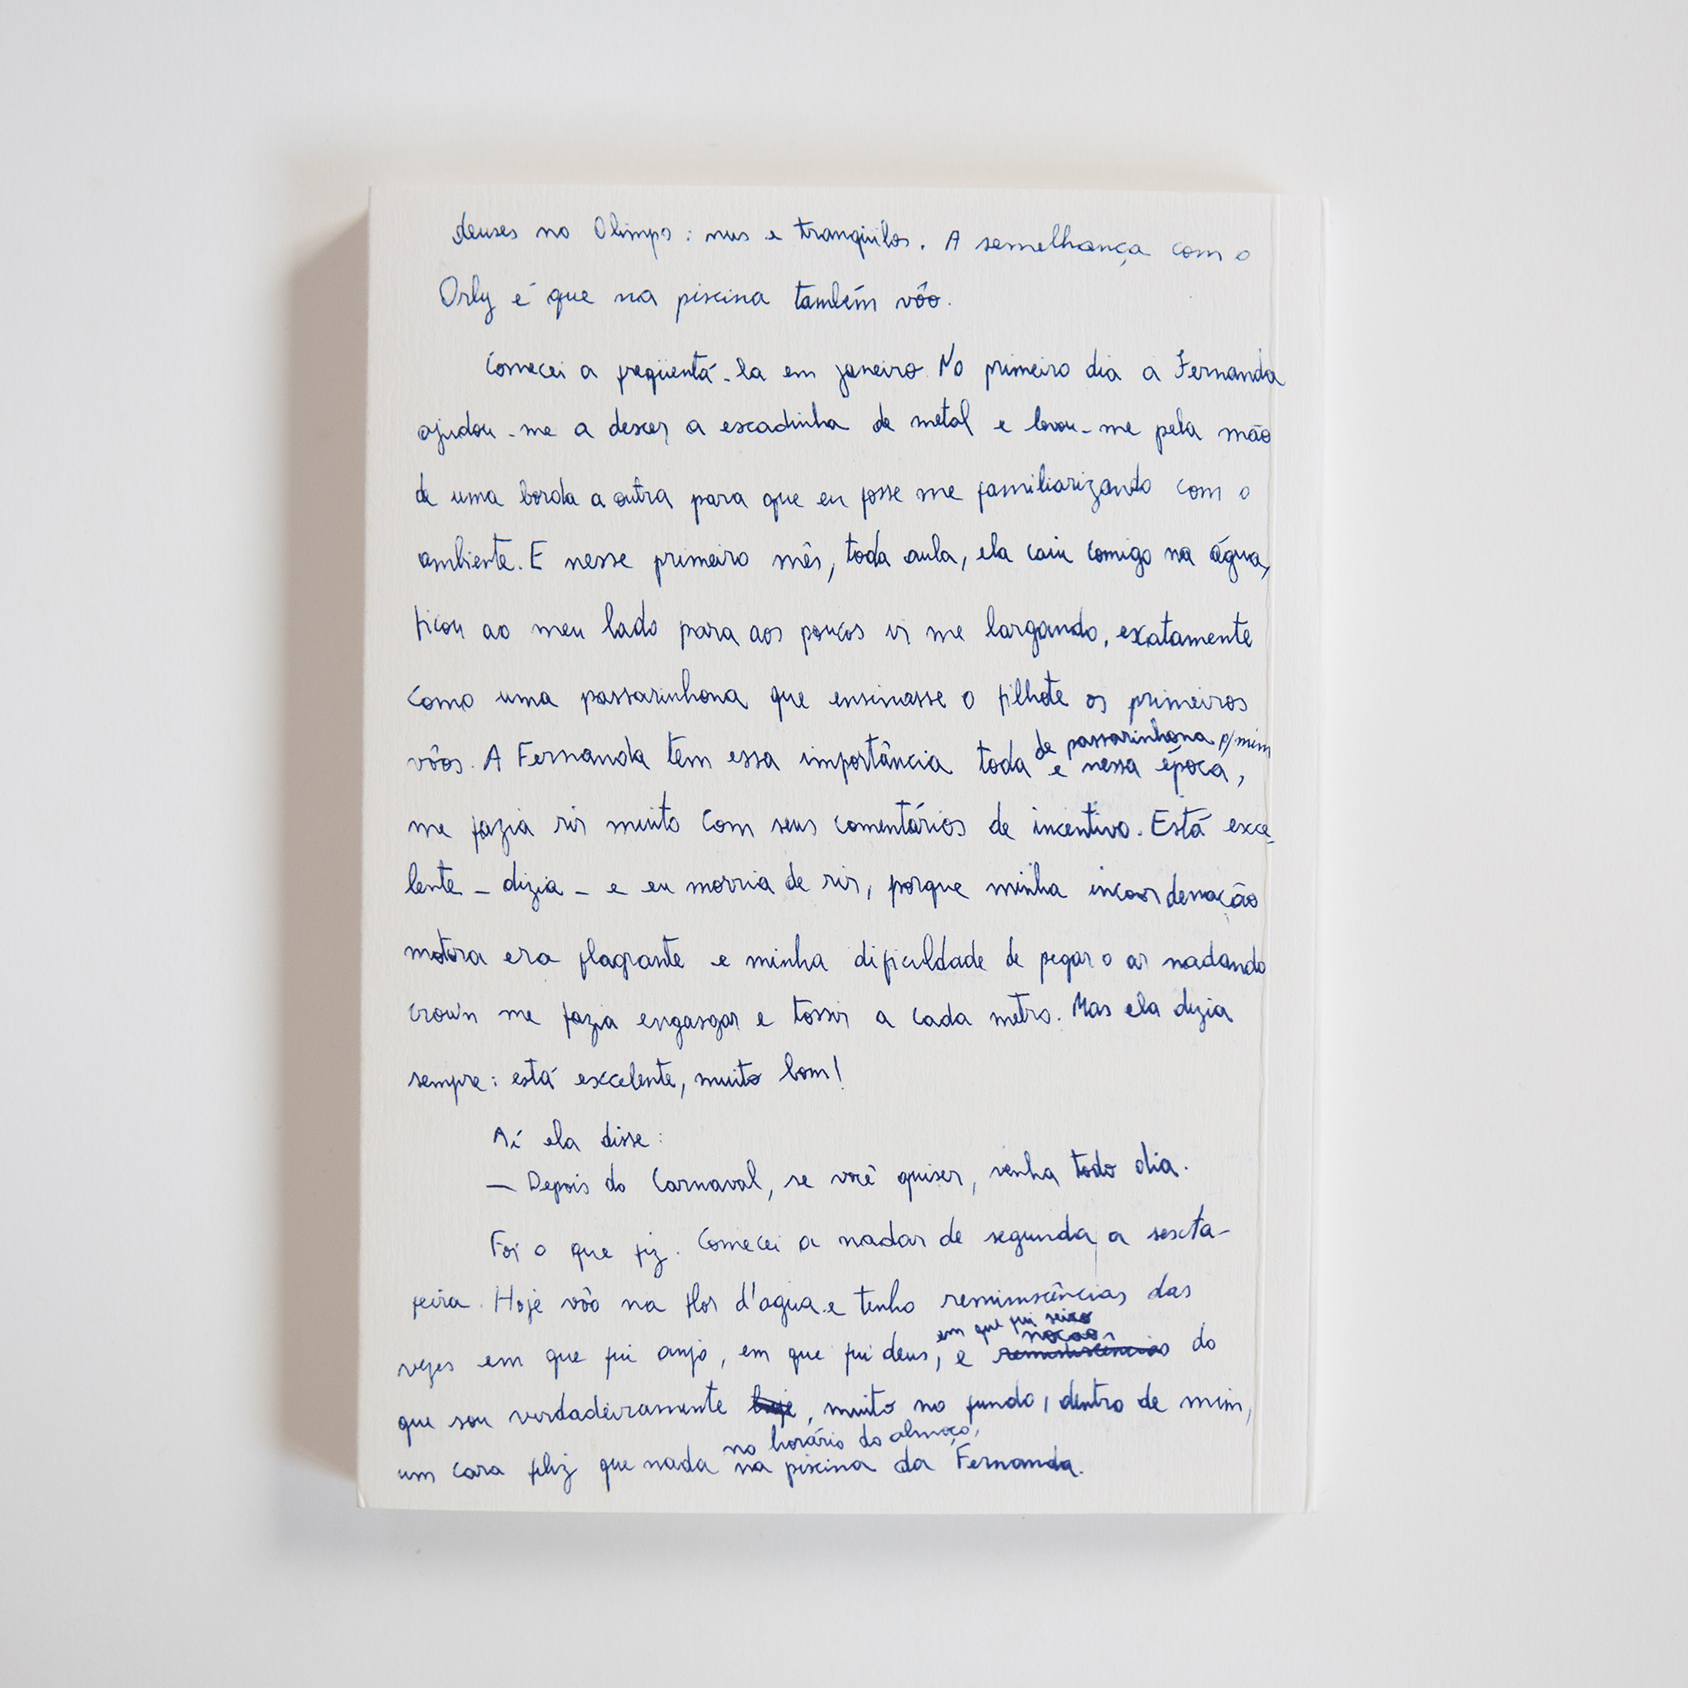 deuses no Olimpo: nus e tranqüilos. A semelhança com o
Orly é que na piscina também vôo.
Comecei a freqüentá-la em janeiro. No primeiro dia a Fernanda
ajudou-me a descer a escadinha de metal e levou-me pela mão
de uma borda a outra para que eu fosse me familiarizando com o
ambiente. E nesse primeiro mês, toda aula, ela caiu comigo na água,
ficou ao meu lado para aos poucos ir me largando, exatamente
como uma passarinhona que ensinasse o filhote os primeiros
vôos. A Fernanda tem essa importância toda de passarinhona p/ mim
e nessa época,
me fazia rir muito com seus comentários de incentivo. Está exce-
lente – dizia – e eu morria de rir, porque minha incoordenação
motora era flagrante e minha dificuldade de pegar o ar nadando
crown me fazia engasgar e tossir a cada metro. Mas ela dizia
sempre: está excelente, muito bom!
Aí ela disse:
— Depois do Carnaval, se você quiser, venha todo dia.
Foi o que fiz. Comecei a nadar de segunda a sexta-
feira. Hoje vôo na flor d'agua e tenho reminiscências das
em que fui
vezes em que fui anjo, em que fui deus, e reminiscências do
que sou verdadeiramente hoje, muito no fundo, dentro de mim,
no horário do almoço,
um cara feliz que nada na piscina da Fernanda.